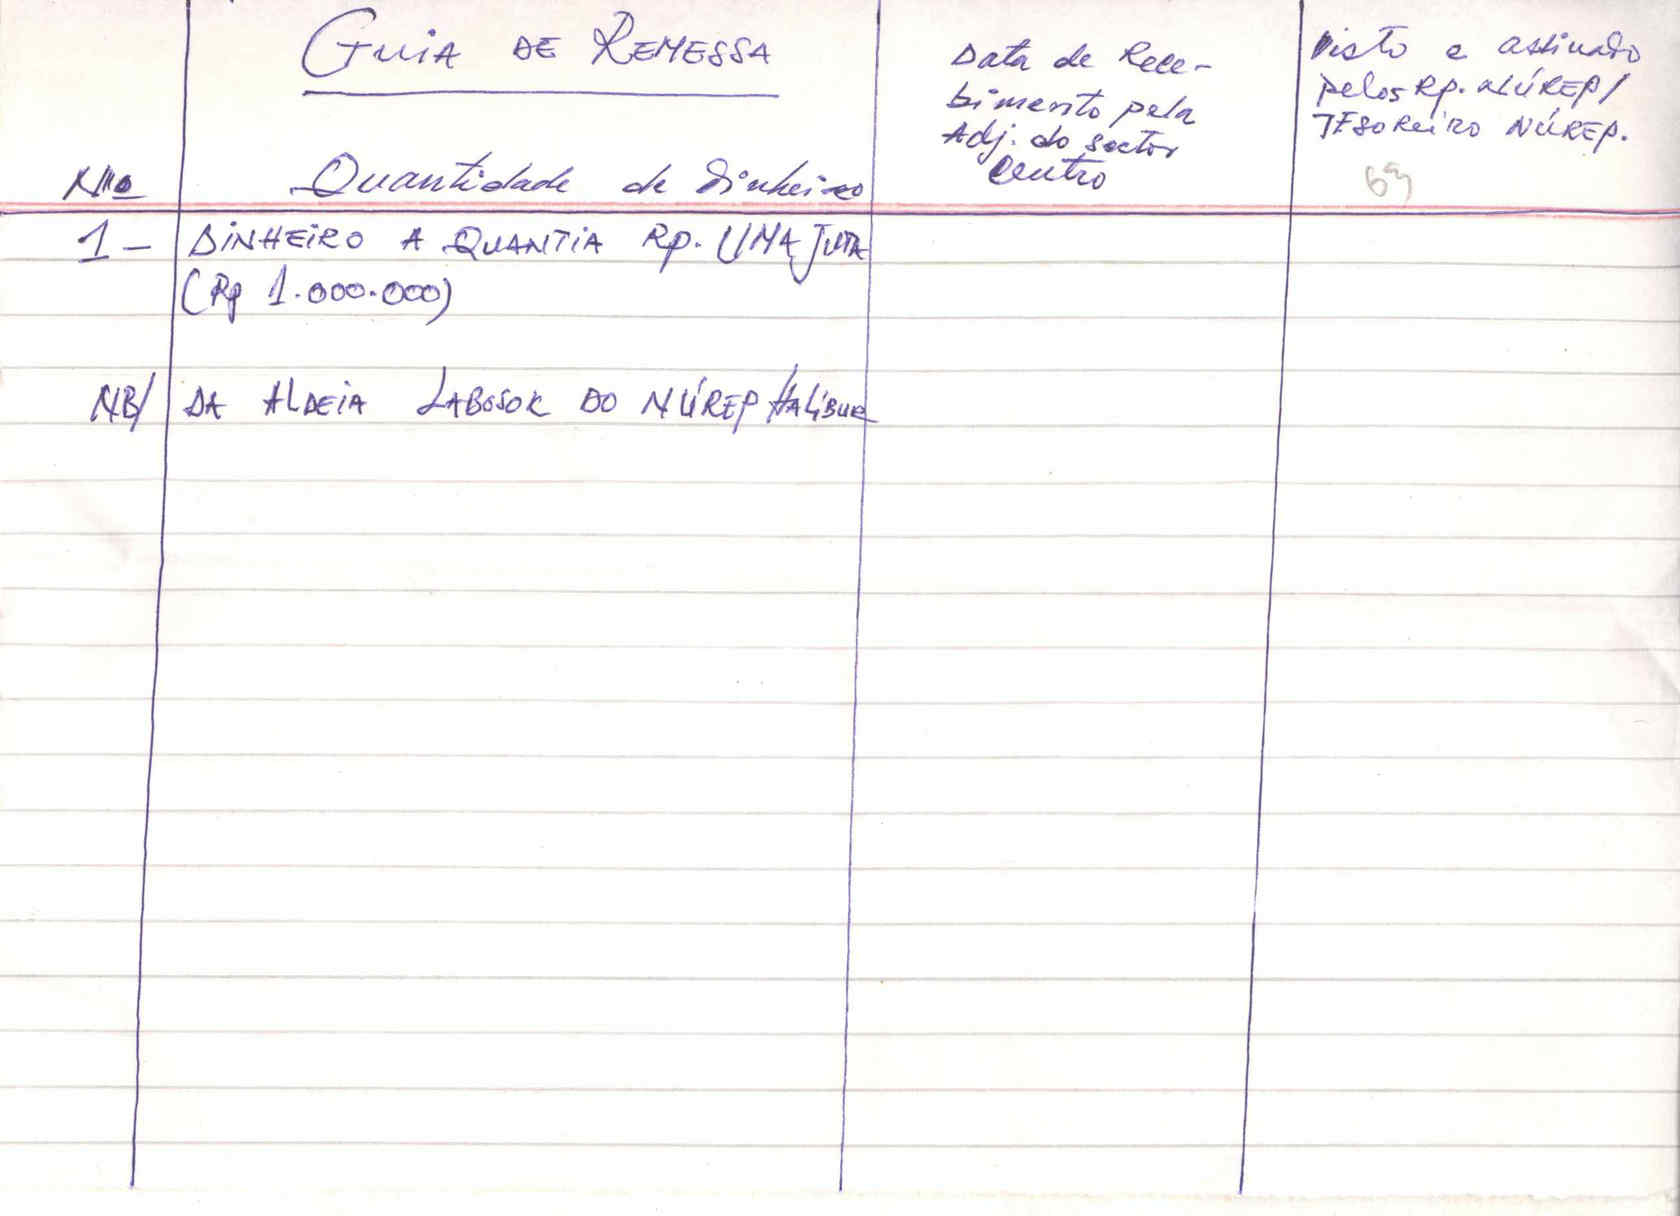 GUIA DE REMESSA
Nº
Quantidade de Dinheiro
Data de Rece-
bimento pela
Adj. do sector
Centro
Visto e assinado
pelos Rp. NÚREP/
TESOREIRO NÚREP.
1- DINHEIRO A QUANTIA Rp. UMA JUTA
(Rp 1.000.000)
NB/ DA ALDEIA LABOSOR DO NÚREP HALIBUR